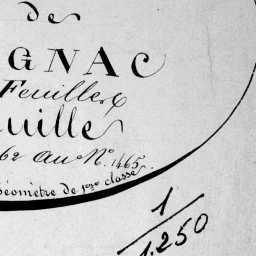 de
GNAC
Feuilles
uille
62 au N° 1465.
Géomètre de 1ère classe
1
1.250